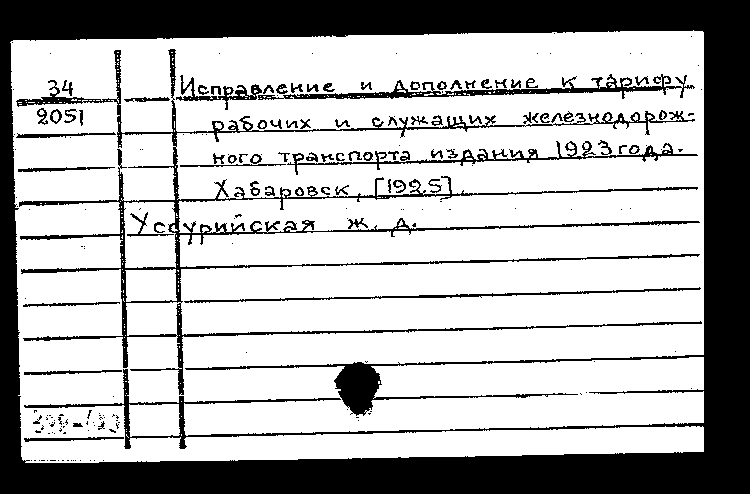 34
2051
Исправление и дополнение к тарифу
рабочих и служащих железнодорож-
ного транспорта издания 1923 года.
Хабаровск, [1925].
Уссурийская ж. д.